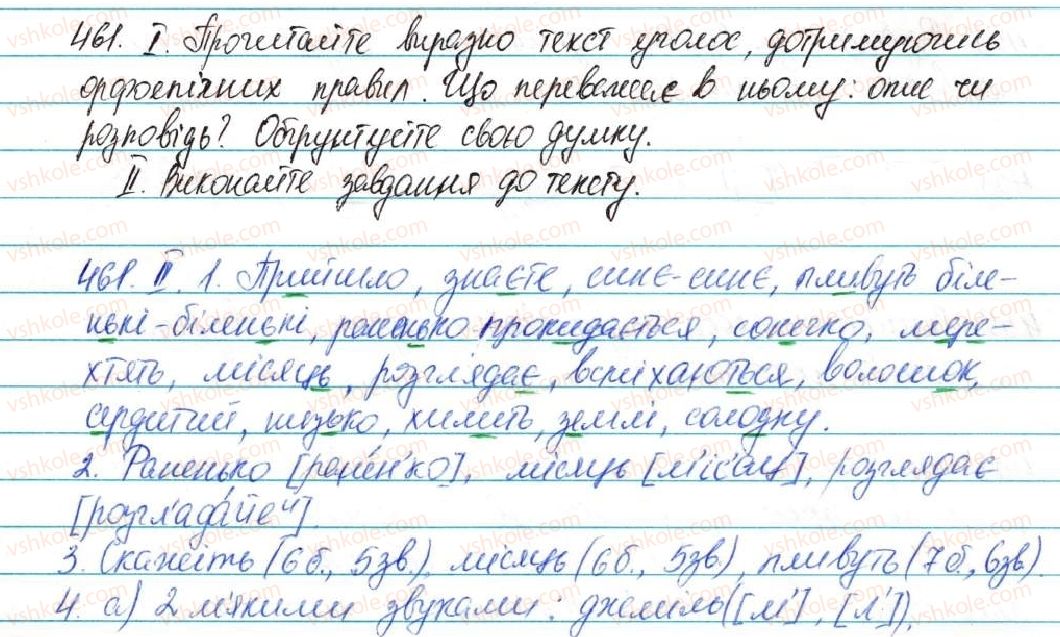 461. І. Прочитайте виразно текст уголос, дотримуючись
орфоепічних правил. Що переважає в ньому: опис чи
розповідь? Обґрунтуйте свою думку.
ІІ. Виконайте завдання до тексту.
461. ІІ. 1. Прийшло, знаєте, синє-синє, пливуть біле-
нькі-біленькі, раненько прокидається, сонечко, мере-
хтять, місяць, розглядає, всміхаються, волошок,
сердитий, низько, хилить, землі, солодку.
2. Раненько [ране́н'ко], місяць [м'іс'ац'], розглядає
[розгл'ада́йеи].
3. Скажіть (6 б., 5 зв.), місяць (6 б., 5 зв.), пливуть (7 б., 6 зв.).
4. а) 2 м'якими звуками: джміль ([м'], [л']),